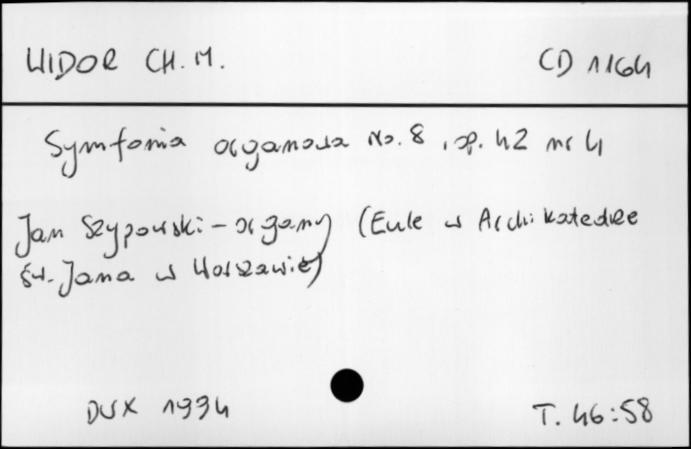 WIDOR CH. M.
CD 1164
Symfonia organowa No. 8, op. 42 nr 4
Jan Szypowski - organy (Eule w Archikatedrze
św. Jana w Warszawie)
DUX 1994
T. 46:58